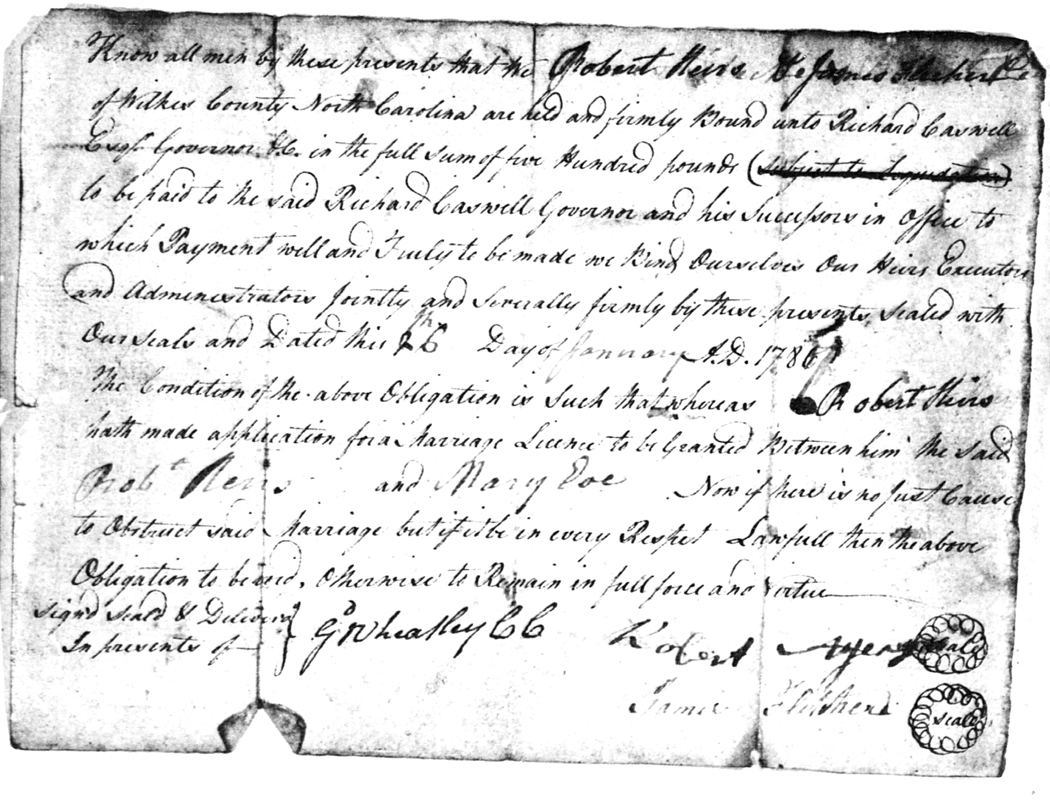 Know all men by these presents that the Robert Heirs & James
of Wilkes County North Carolina are held and firmly Bound unto Richard Caswell
Esqr. Governor &C. in the full sum of five Hundred pounds (subject to Liquidation)
to be paid to the said Richard Caswell Governor and his Successors in Office to
which Payment well and Truly to be made we Bind Ourselves Our Heirs Executors
and Administrators Jointly and Severally firmly by these presents sealed with
Our seals and Dated this 26th Day of January A.D. 1786
The Condition of the above Obligation is Such that whereas Robert Heirs
hath made application for a Marriage Licence to be Granted Between him the said
Robt Heirs and Mary Coe Now if there is no Just Cause
to Obstruct said Marriage but if it be in every Respet Lawfull then the above
Obligation to be void, Otherwise to Remain in full force and virtue
Signd Seald & Deliverd
In presents of G Wheatley CC
Robert Ayers seal
James seal